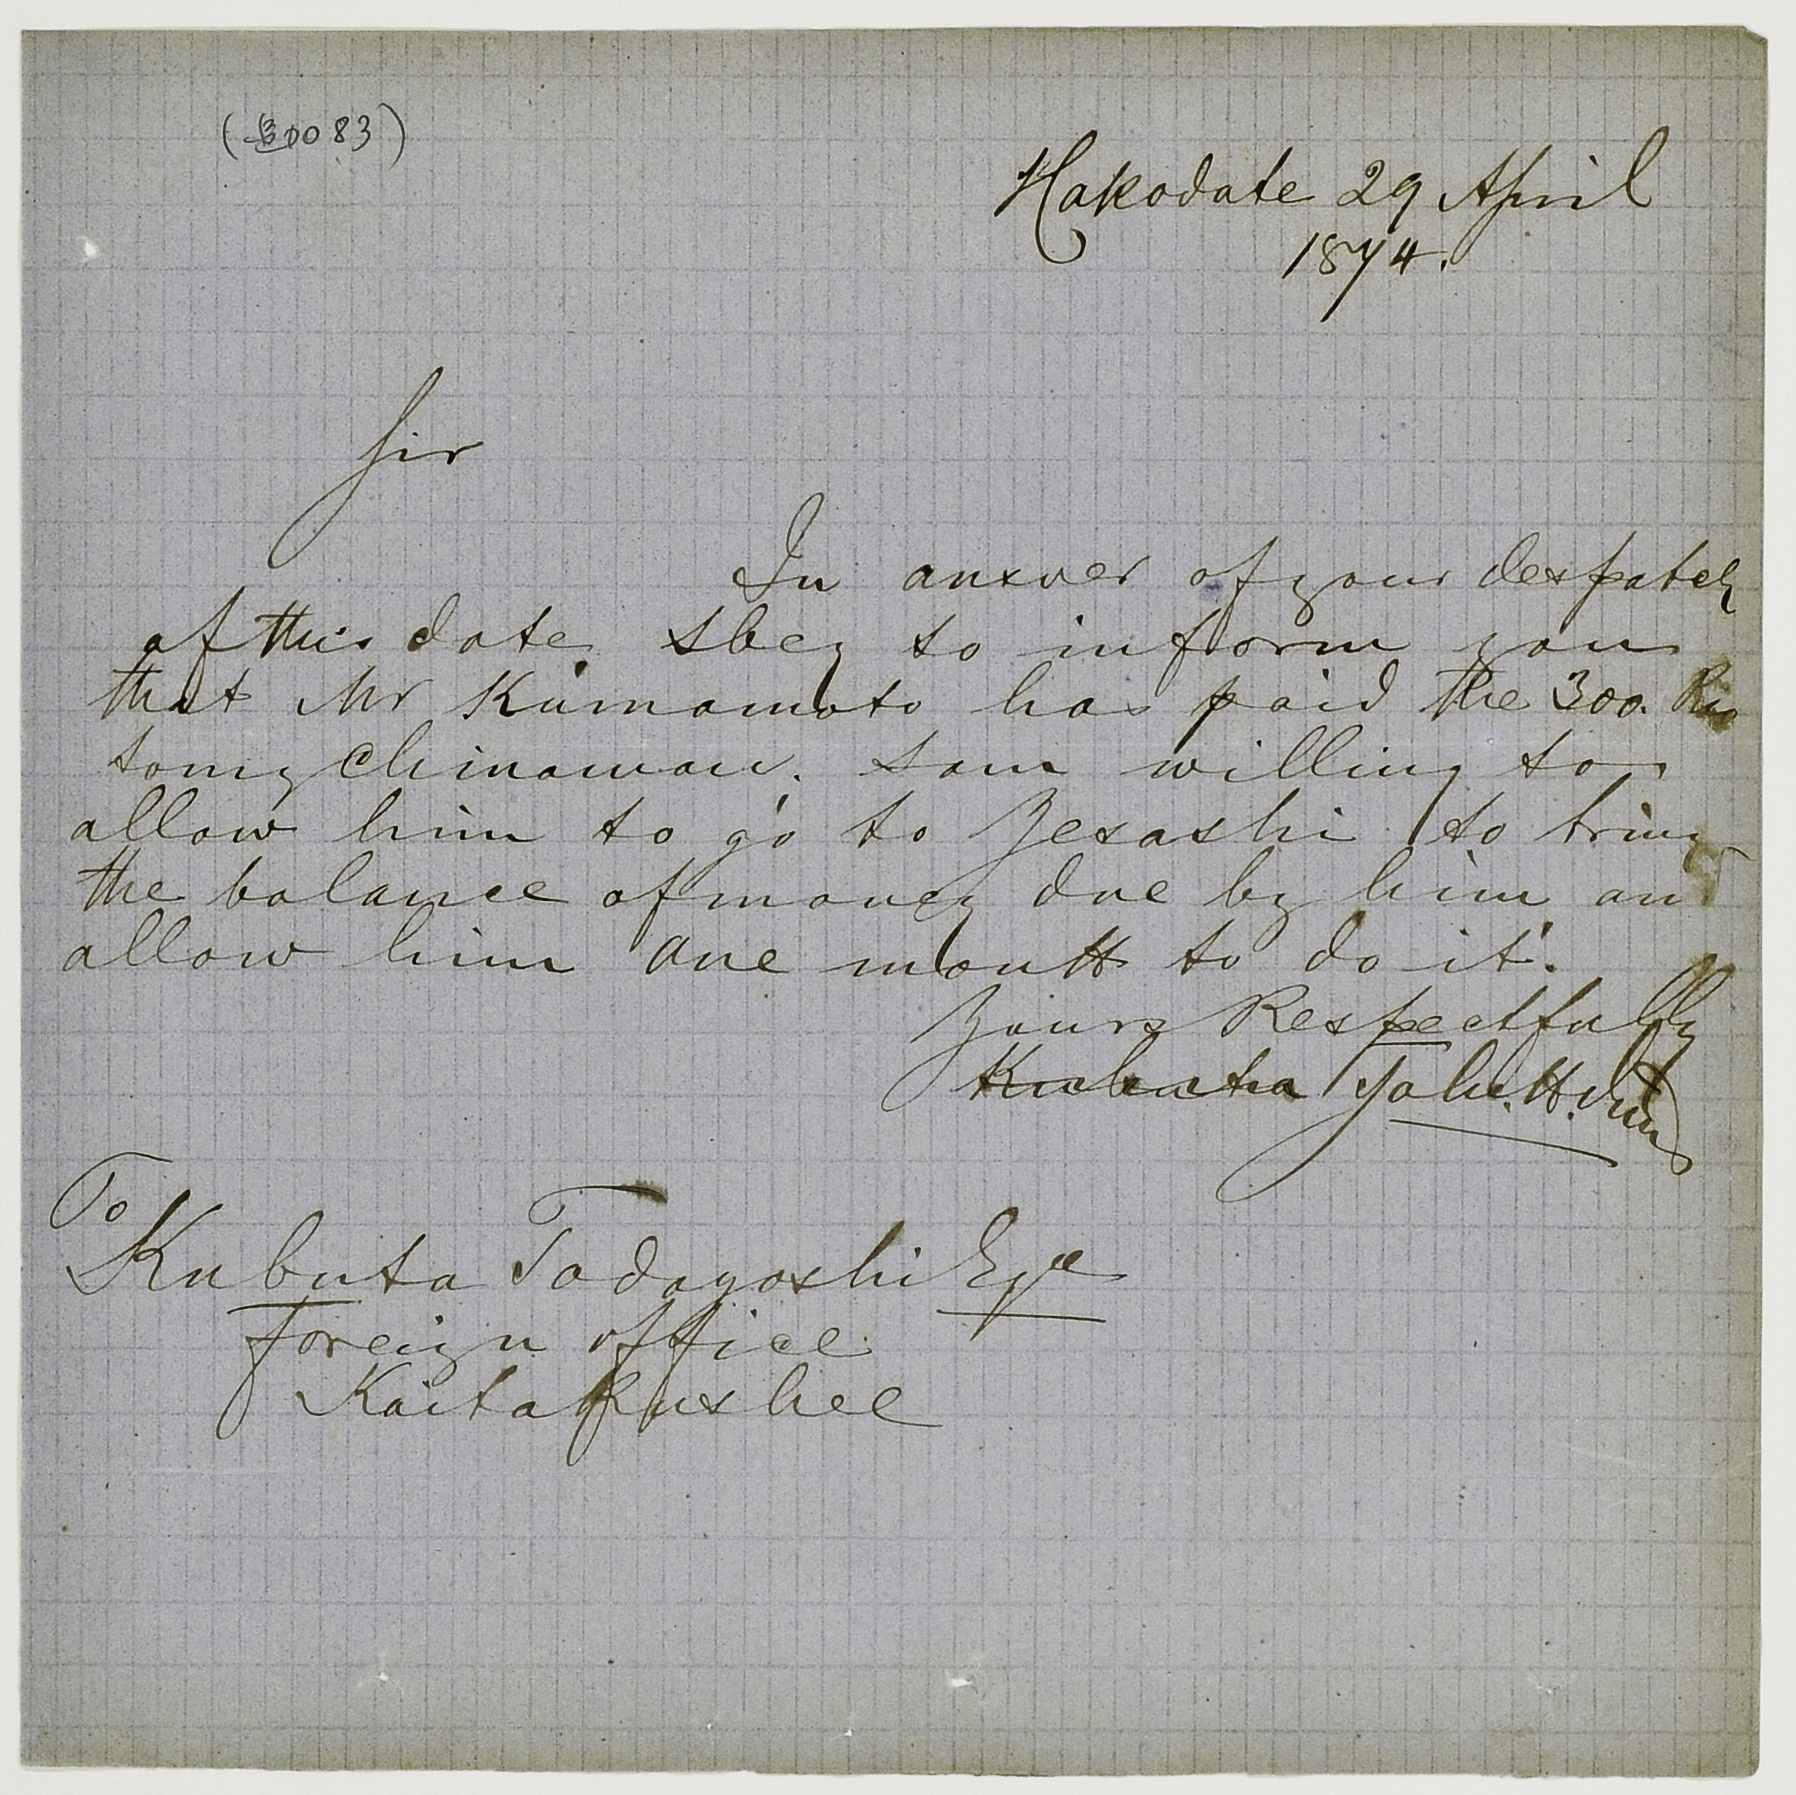 0083
Hakodate 29 April
1874.
Sir
In answer of your despatch
of this date I beg to inform you
that Mr Kumamoto has paid the 300. Rio
to my Chinaman. I am willing to
allow him to go to Yesashi to bring
the balance of money due by him and
allow him one month to do it.
Yours Respectfully
Kubuta John H. Duus
To
Kubuta Tadayoshi Eqre
Foreign office
Kaitakushee